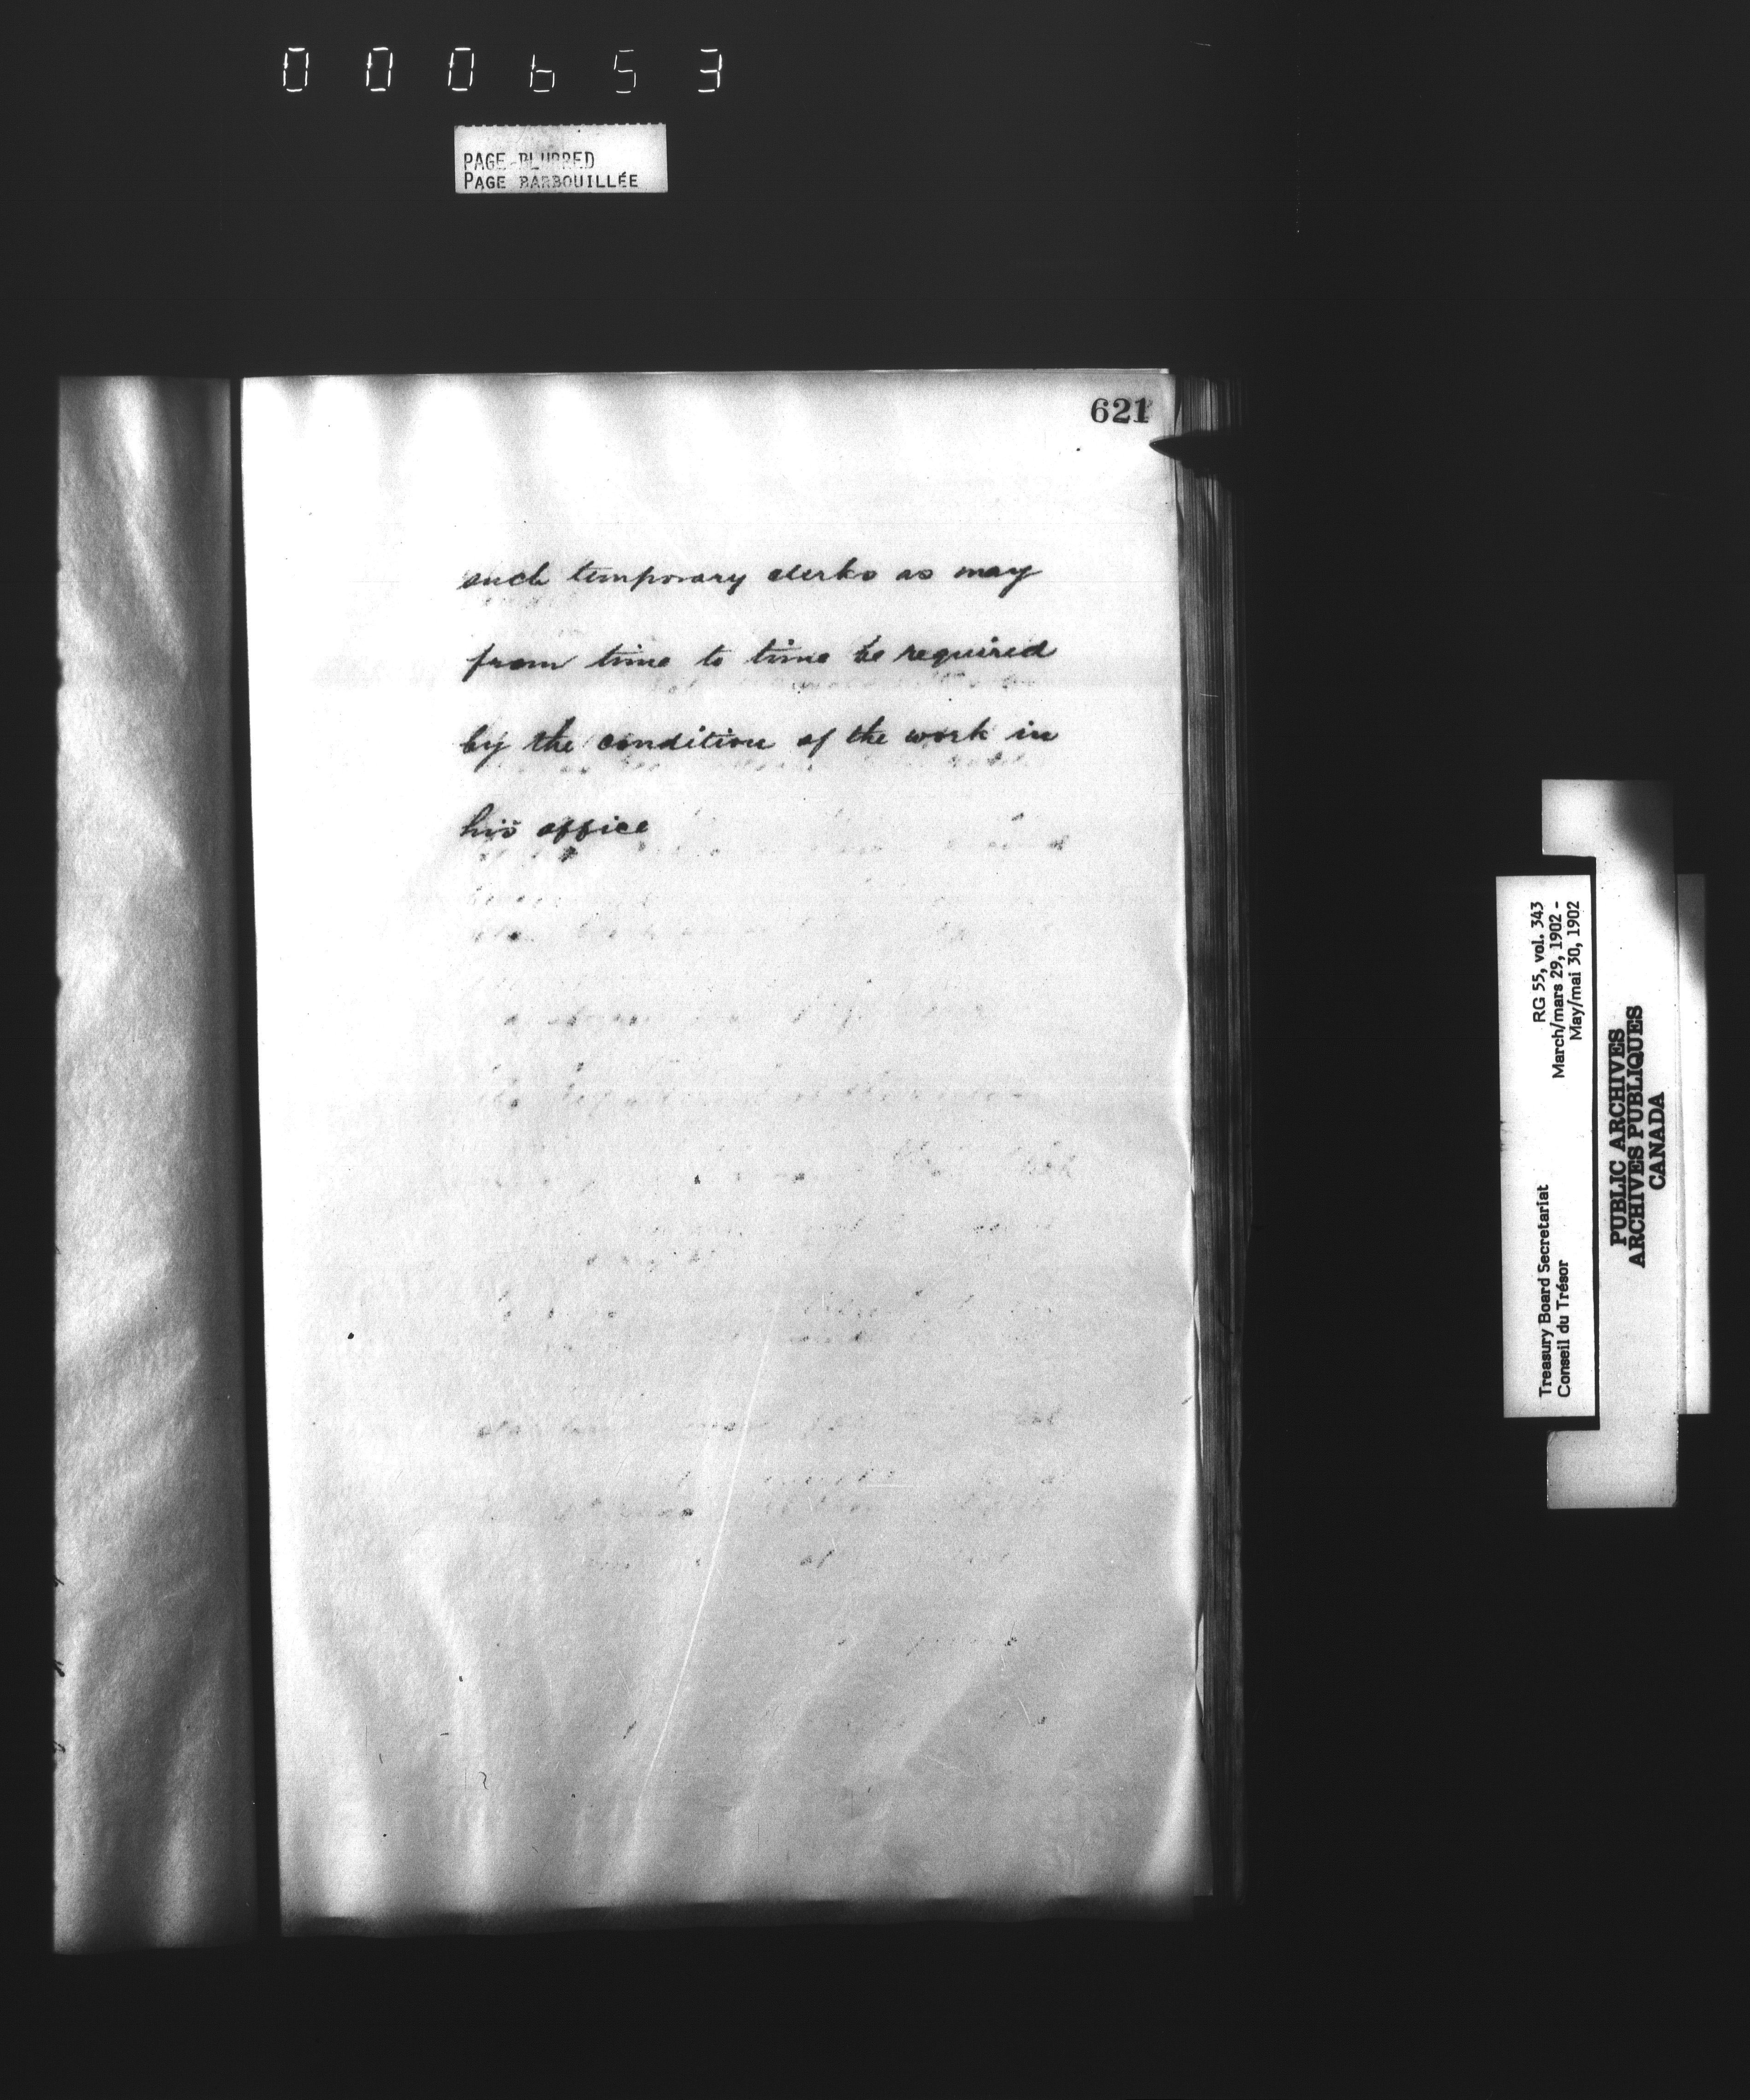 000653
PAGE BLURRED
PAGE BARBOUILLÉE
621
such temporary clerks as may
from time to time be required
by the condition of the work in
his office
RG 55, vol. 343
March/mars 29, 1902 -
May/mai 30, 1902
Treasury Board Secretariat
Conseil du Trésor
PUBLIC ARCHIVES
ARCHIVES PUBLIQUES
CANADA